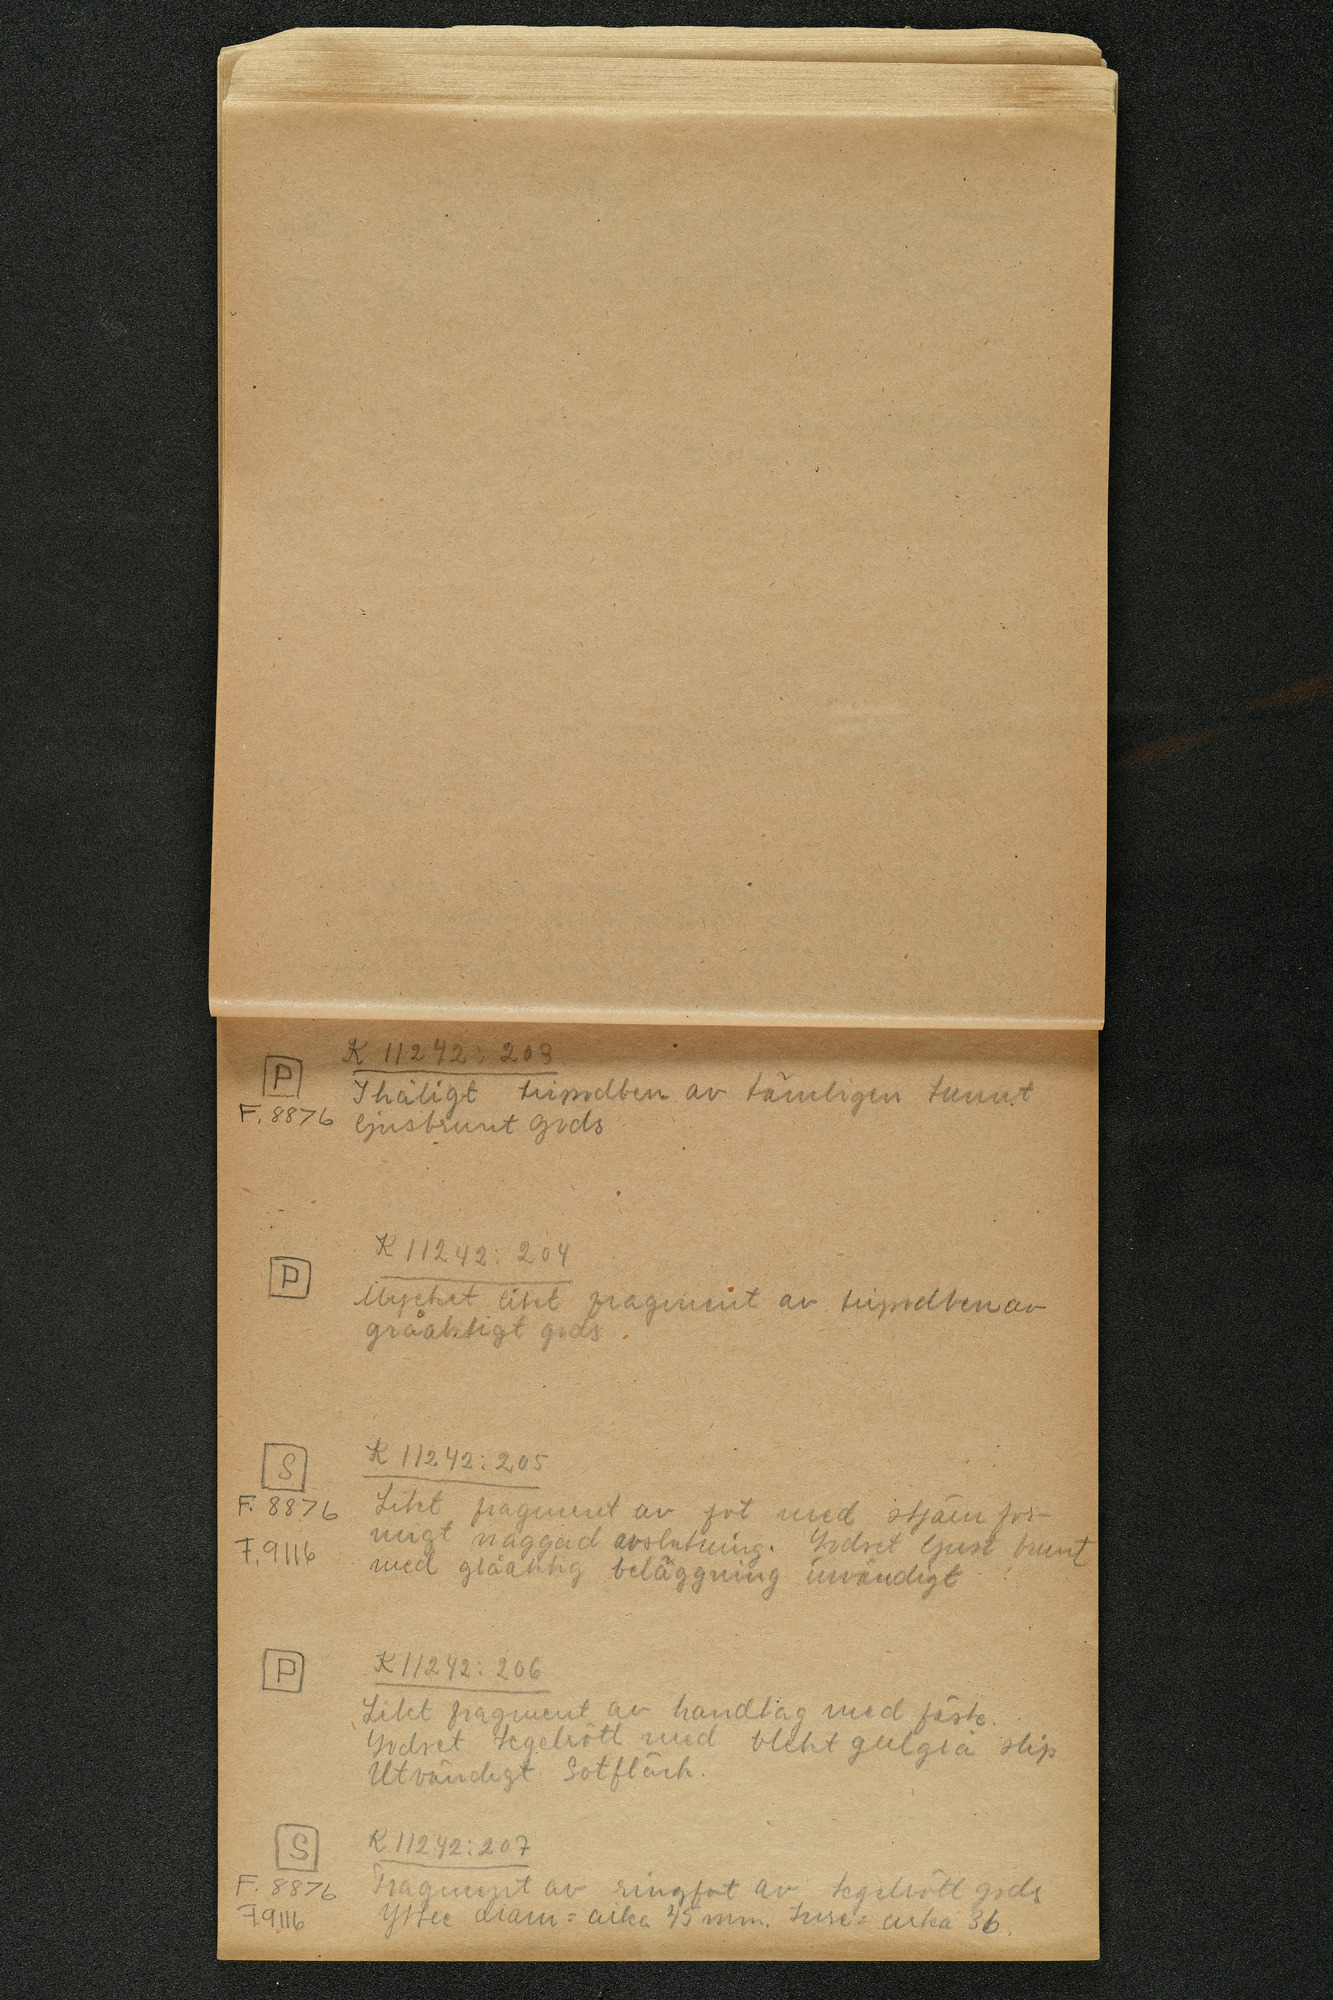 K 11242:203
P
Ihåligt tripodben av tämligen tunnt
F. 8876
ljusbrunt gods
K 11242:204
P
Mycket litet fragment av tripodben av
gråaktigt gods.
K 11242:205
S
F. 8876
Litet fragment av fot med stjärnfor-
migt naggad avslutning. Godset ljust brunt
F. 9116
med gråaktig beläggning invändigt
K 11242:206
P
Litet fragment av handtag med fäste.
Godset tegelrött med blekt gulgrå slip
Utvändigt Sotfläck.
K 11242:207
S
F. 8876
Fragment av ringfot av tegelrött gods
F 9116
Yttre diam = cirka 45 mm. Inre = cirka 36.